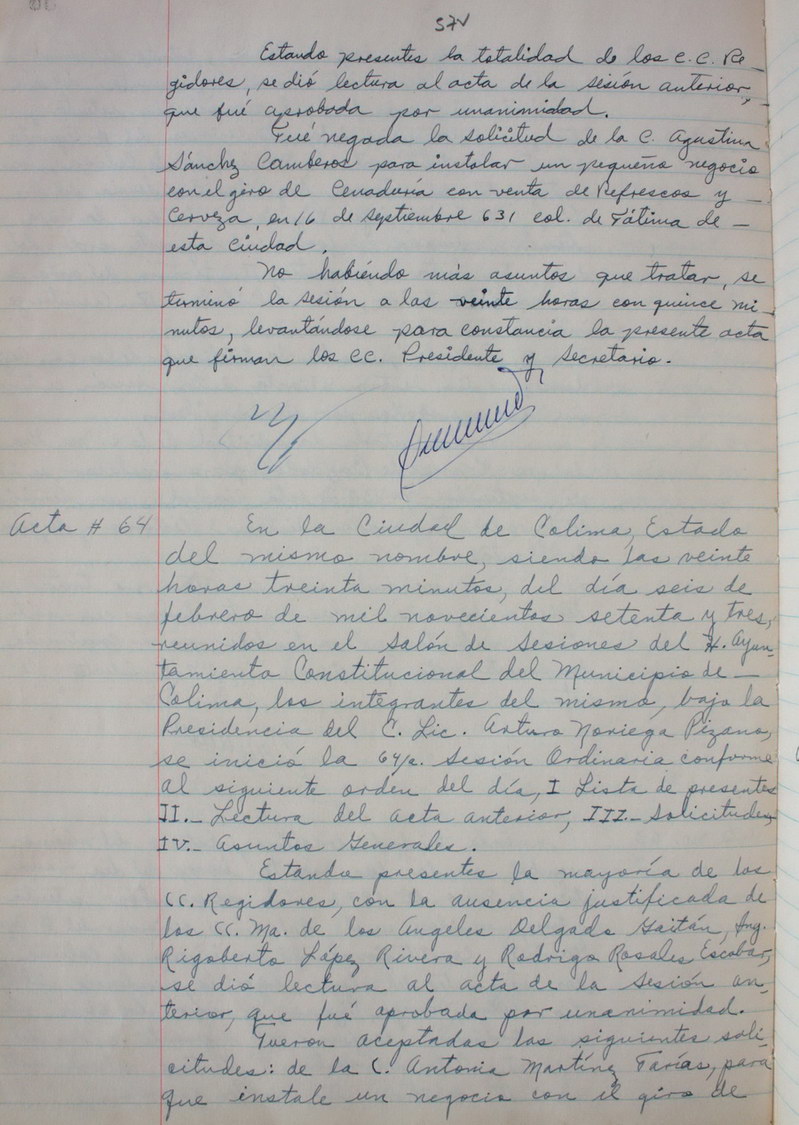 57v
Estando presentes la totalidad de los C.C. Re_
gidores, se dió lectura al acta de la sesión anterior,_
que fué aprobada por unanimidad.
Fué negada la solicitud de la C. Agustina
Sánchez Camberos para instalar un pequeño negocio
con el giro de Cenaduría con venta de Refrescos y _
Cerveza, en 16 de Septiembre 631 col. de Fátima de _
esta Ciudad.
No habiendo más asuntos que tratar, se
terminó la sesión a las veinte horas con quince mi_
nutos, levantándose para constancia la presente acta
que firman los CC. Presidente y Secretario.
Acta # 64
En la Ciudad de Colima, Estado
del mismo nombre, siendo las veinte
horas treinta minutos, del día seis de
febrero de mil novecientos setenta y tres,
reunidos en el Salón de Sesiones del H. Ayun-
tamiento Constitucional del Municipio de _
Colima, los integrantes del mismo, bajo la
Presidencia del C. Lic. Arturo Noriega Pizano,
se inició la 64/a. Sesión Ordinaria conforme
al siguiente orden del día, I Lista de presentes
II.- Lectura del acta anterior, III.- Solicitudes,
IV.- Asuntos Generales.
Estando presentes la mayoría de los
CC. Regidores, con la ausencia justificada de
los CC. Ma. de los Angeles Delgado Gaitán, Ing.
Rigoberto López Rivera y Rodrigo Rosales Escobar,
se dió lectura al acta de la sesión an_
terior, que fué aprobada por unanimidad.
Fueron aceptadas las siguientes soli_
citudes: de la C. Antonia Martínez Farías, para
que instale un negocio con el giro de